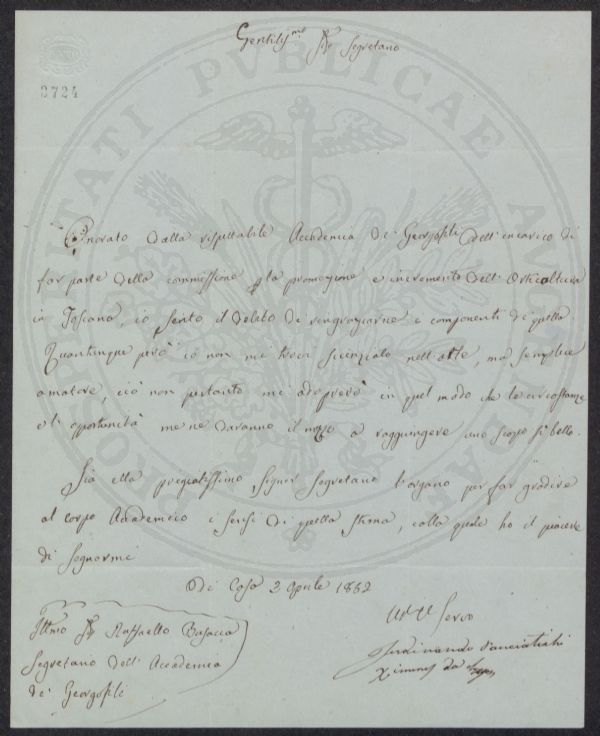 Gentilis.mo Sig.r Segretario
2724
PROSPERITATI PVBLICAE AVGENDAE
Onorato dalla rispettabile Accademia dei Georgofili dell'incarico di
far parte della commissione p la promozione e incremento dell'Orticultura
in Toscana, io sento il debito di ringraziarne i componenti di quella.
Quantunque però io non mi trovi scienziato nell'arte, ma semplice
amatore, ciò non pertanto mi adoprerò in quel modo che le circostanze
e le opportunità me ne daranno il mezzo a raggiungere uno scopo sì bello.
Sia ella pregiatissimo Signor Segretario l'organo per far gradire
al corpo Accademico i sensi di quella stima, colla quale ho il piacere
di segnarmi
Di Casa 3 Aprile 1852
Illmo Sig Raffaello Busacca
Segretario dell'Accademia
dei Georgofili
Servo
Ferdinando Panciatichi
Ximenes da